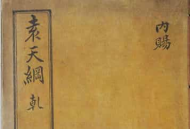 內賜
袁天綱 乾